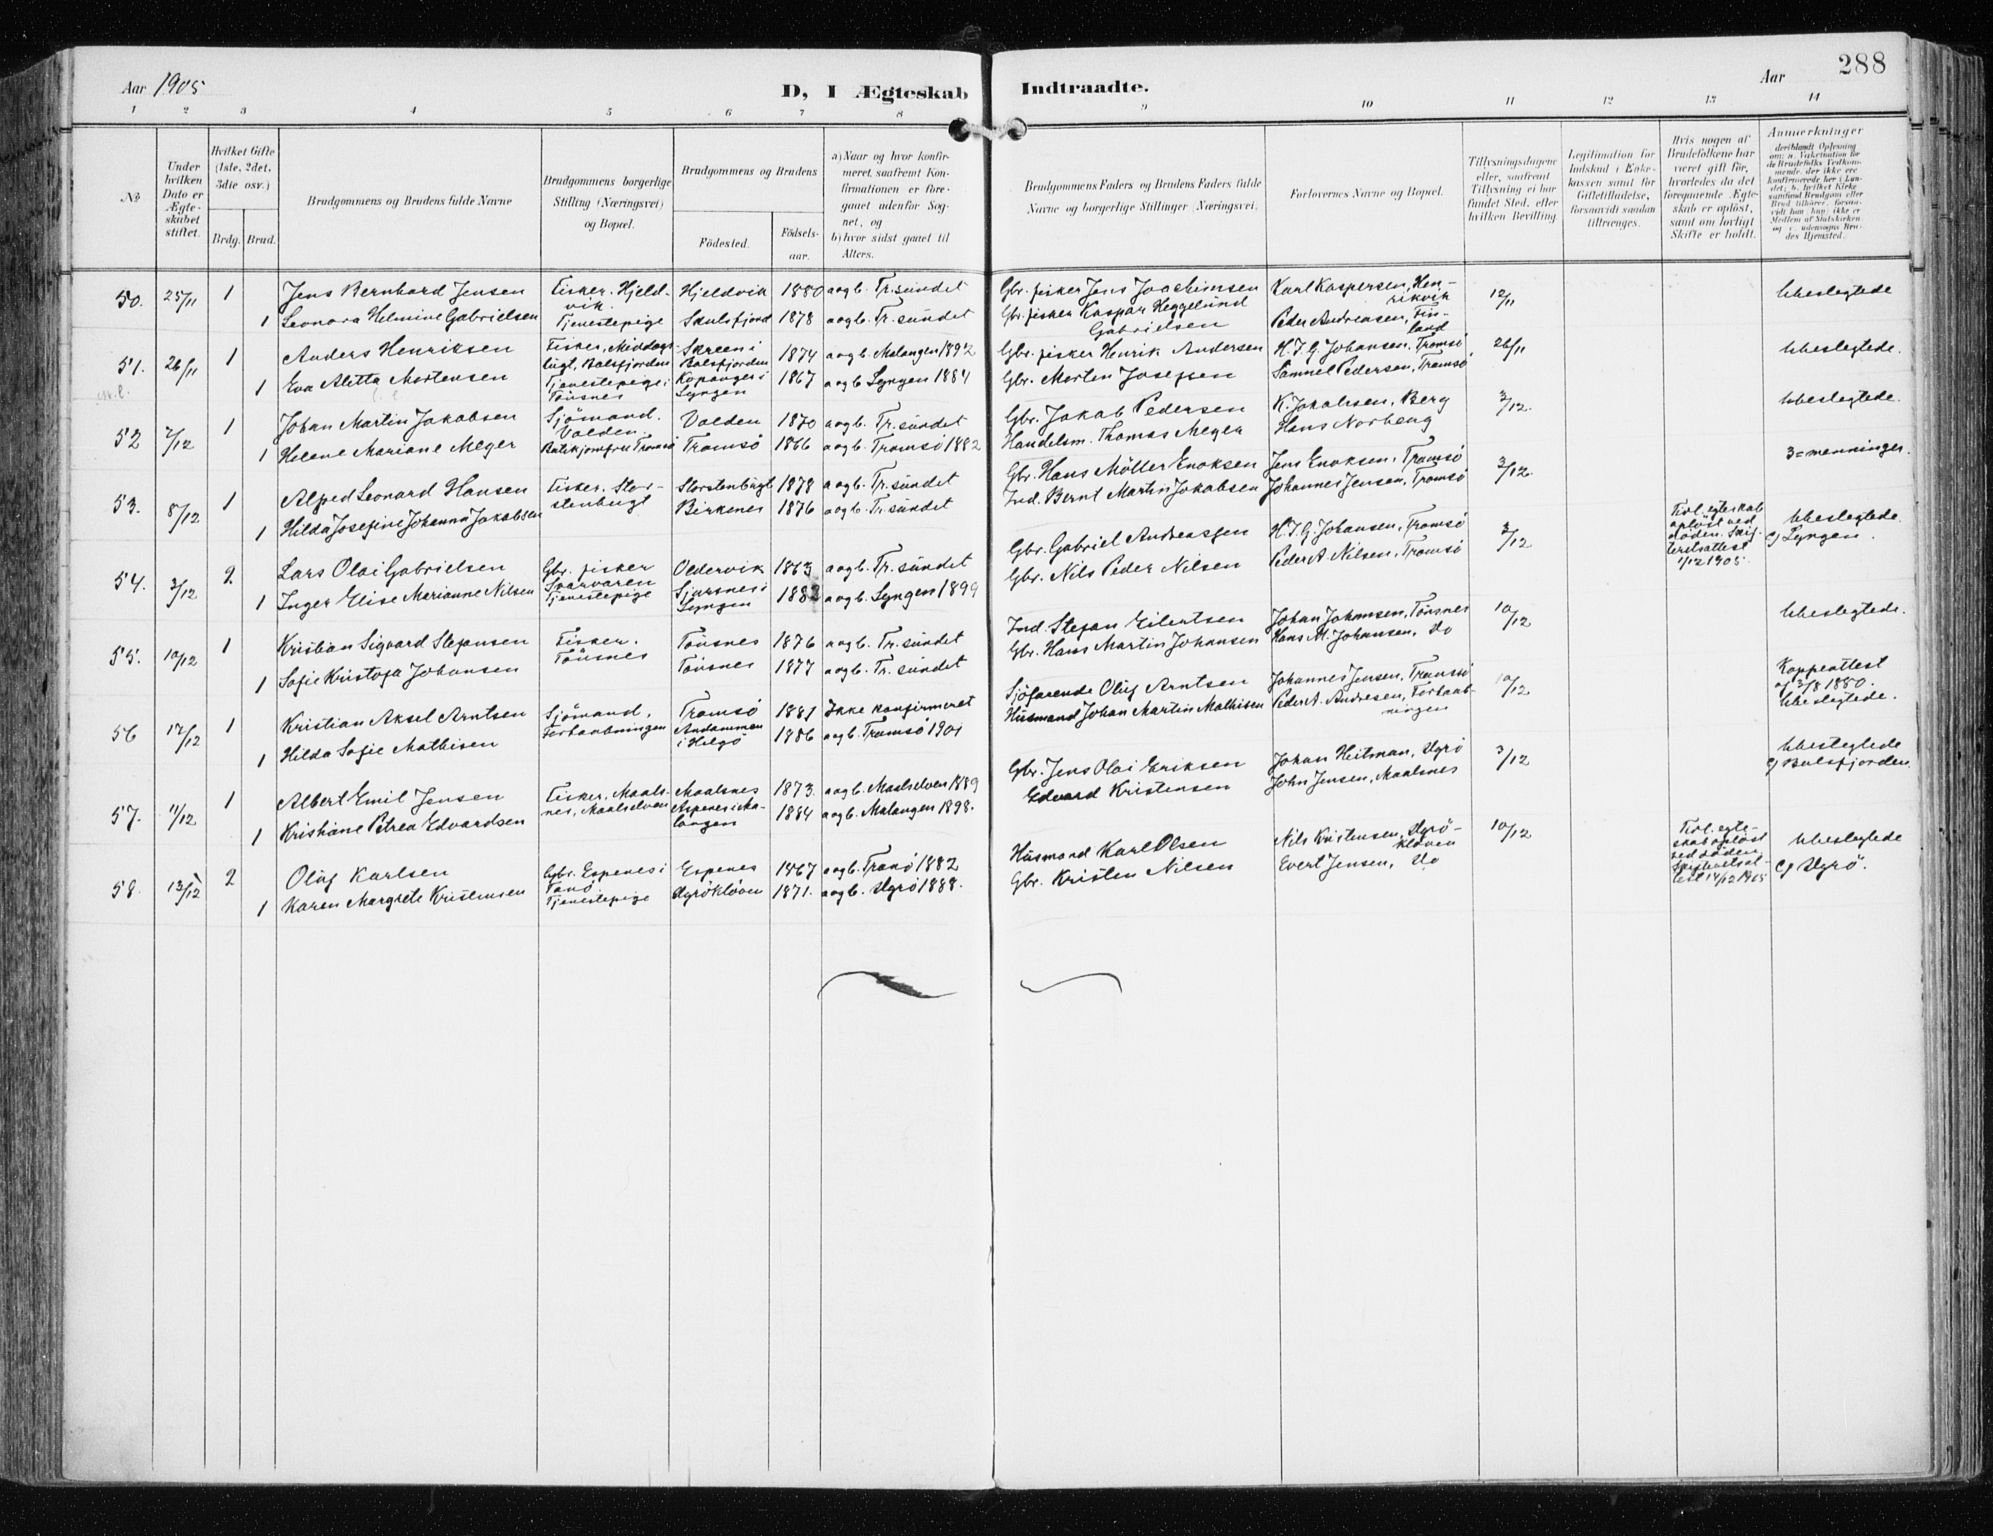 Aar 1905
D, I Ægteskab Indtraadte.
Aar
288
1 2 3 4 5 6 7 8 9 10 11 12 13 14
№
Under hvilken Dato er Ægteskabet stiftet.
Hvilket Gifte (1ste, 2det, 3die osv.)
Brdg. Brud.
Brudgommens og Brudens fulde Navne
Brudgommens borgerlige Stilling (Næringsvei) og Bopæl.
Brudgommens og Brudens
Födested.
Födselsaar.
a) Naar og hvor konfirmeret, saafremt Konfirmationen er foregaaet udenfor Sognet, og
b) hvor sidst gaaet til Alters.
Brudgommens Faders og Brudens Faders fulde Navne og borgerlige Stillinger (Næringsvei).
Forlovernes Navne og Bopæl.
Tillysningsdagene eller, saafremt Tillysning ei har fundet Sted, efter hvilken Bevilling.
Legitimation for Indskud i Enkekassen samt for Giftetilladelse, forsaavidt saadan tiltrænges.
Hvis nogen af Brudefolkene har været gift för, hvorledes da det foregaaende Ægteskab er oplöst, samt om lovligt Skifte er holdt.
Anmerkninger
50. 25/11 1 Jens Bernhard Jensen Fisker. Hjeldvik. Hjeldvik 1880 a og b. Tr.sundet Gbr. fisker Jens Joachimsen Karl Kaspersen, Henrikvik 12/11 Ubeslegtede
1 Leonora Helmine Gabrielsen Tjenestepige Skulsfjord 1878 a og b. Tr.sundet Gbr. fisker Kaspar Heggelund Gabrielsen Peder Andreasen, Finland
51. 26/11 1 Anders Henriksen Fisker, Middagsbugt, Balsfjorden Skreen i Balsfjorden 1874 a og b. Malangen 1892 Gbr. fisker Henrik Andersen H.J.G. Johansen, Tromsö 26/11 Ubeslegtede.
1 Eva Aletta Mortensen Tjenestepige i Tönsnes Kopanger i Lyngen 1867 a og b. Lyngen 1884 Gbr. Morten Josefsen Samuel Pedersen, Tromsö
52 2/12 1 Johan Martin Jakobsen Sjömand. Valden. Valden 1870 a og b. Tr.sundet Gbr. Jakob Pedersen K. Jakobsen, Berg 3/12. Ubeslegtede.
1 Helene Mariane Meyer Butikjomfru Tromsö Tromsö 1866 a og b. Tromsö 1882 Handelsm. Thomas Meyer Hans Norberg
53. 8/12 1 Alfred Leonard Hansen Fisker. Storstenbugt Storstenbugt 1878 a og b. Tr.sundet Gbr. Hans Möller Enoksen Jens Enoksen, Tromsö 3/12. 3=menninger.
1 Hilda Josefine Johanna Jakobsen Birkenes 1876 a og b. Tr.sundet Ind. Bernt Martin Jakobsen Johannes Jensen, Tromsö
54. 3/12 2 Lars Olai Gabrielsen Gbr. fisker Svarvaren Oldervik 1863 a og b. Tr.sundet Gbr. Gabriel Andreassen H.J.G. Johansen, Tromsö 3/12 Tidl. egteskab oplöst ved döden. Skifteretsattest 1/12 1905. Ubeslegtede. c) Lyngen.
1 Inger Elise Marianne Nilsen Tjenestepige Sjursnes i Lyngen a og b. Lyngen 1899 Gbr. Nils Peder Nilsen Peder A. Nilsen, Tromsö
55. 10/12 1 Kristian Sigvard Stefansen Fisker. Tönsnes Tönsnes 1876 a og b. Tr.sundet Ind. Stefan Eilertsen Johan Johansen, Tönsnes 10/12 Ubeslegtede.
1 Sofie Kristofa Johansen Tönsnes 1877 a og b. Tr.sundet Gbr. Hans Martin Johansen Hans M. Johansen, Do
56 17/12 1 Kristian Aksel Arntsen Sjömand, Forhaabningen Tromsö 1881 Ikke konfirmeret Sjöfarende Oluf Arntsen Johannes Jensen, Tromsö 10/12 Koppeattest af 3/8 1880. Ubeslegtede.
1 Hilda Sofie Mathisen Andammen i Helgö 1886 a og b. Tromsö 1901 Husmand Johan Martin Mathisen Peder A. Andresen, Forhaabningen
57. 11/12 1 Albert Emil Jensen Fisker, Maalsnes, Maalselven Maalsnes 1873. a og b. Maalselven 1889 Gbr. Jens Olai Eriksen Johan Heitman, Ugrö 3/12 Ubeslegtede c) Balsfjorden.
1 Kristiane Petrea Edvardsen Aspenes i Malangen 1884 a og b. Malangen 1898. Edvard Kristensen John Jensen, Maalsnes
58. 13/12 2 Oluf Karlsen Gbr. Espenes i Tranö. Espenes 1867 a og b. Tranö 1882 Husmand Karl Olsen Nils Kristensen, Ugrökloven 10/12 Tidl. egteskab oplöst ved döden, Skifteretsattest 14/12 1905 Ubeslegtede c) Ugrö.
1 Karen Margrete Kristensen Tjenestepige Ugrökloven 1871. a og b. Ugrö 1888. Gbr. Kristen Nilsen Evert Jensen, Do